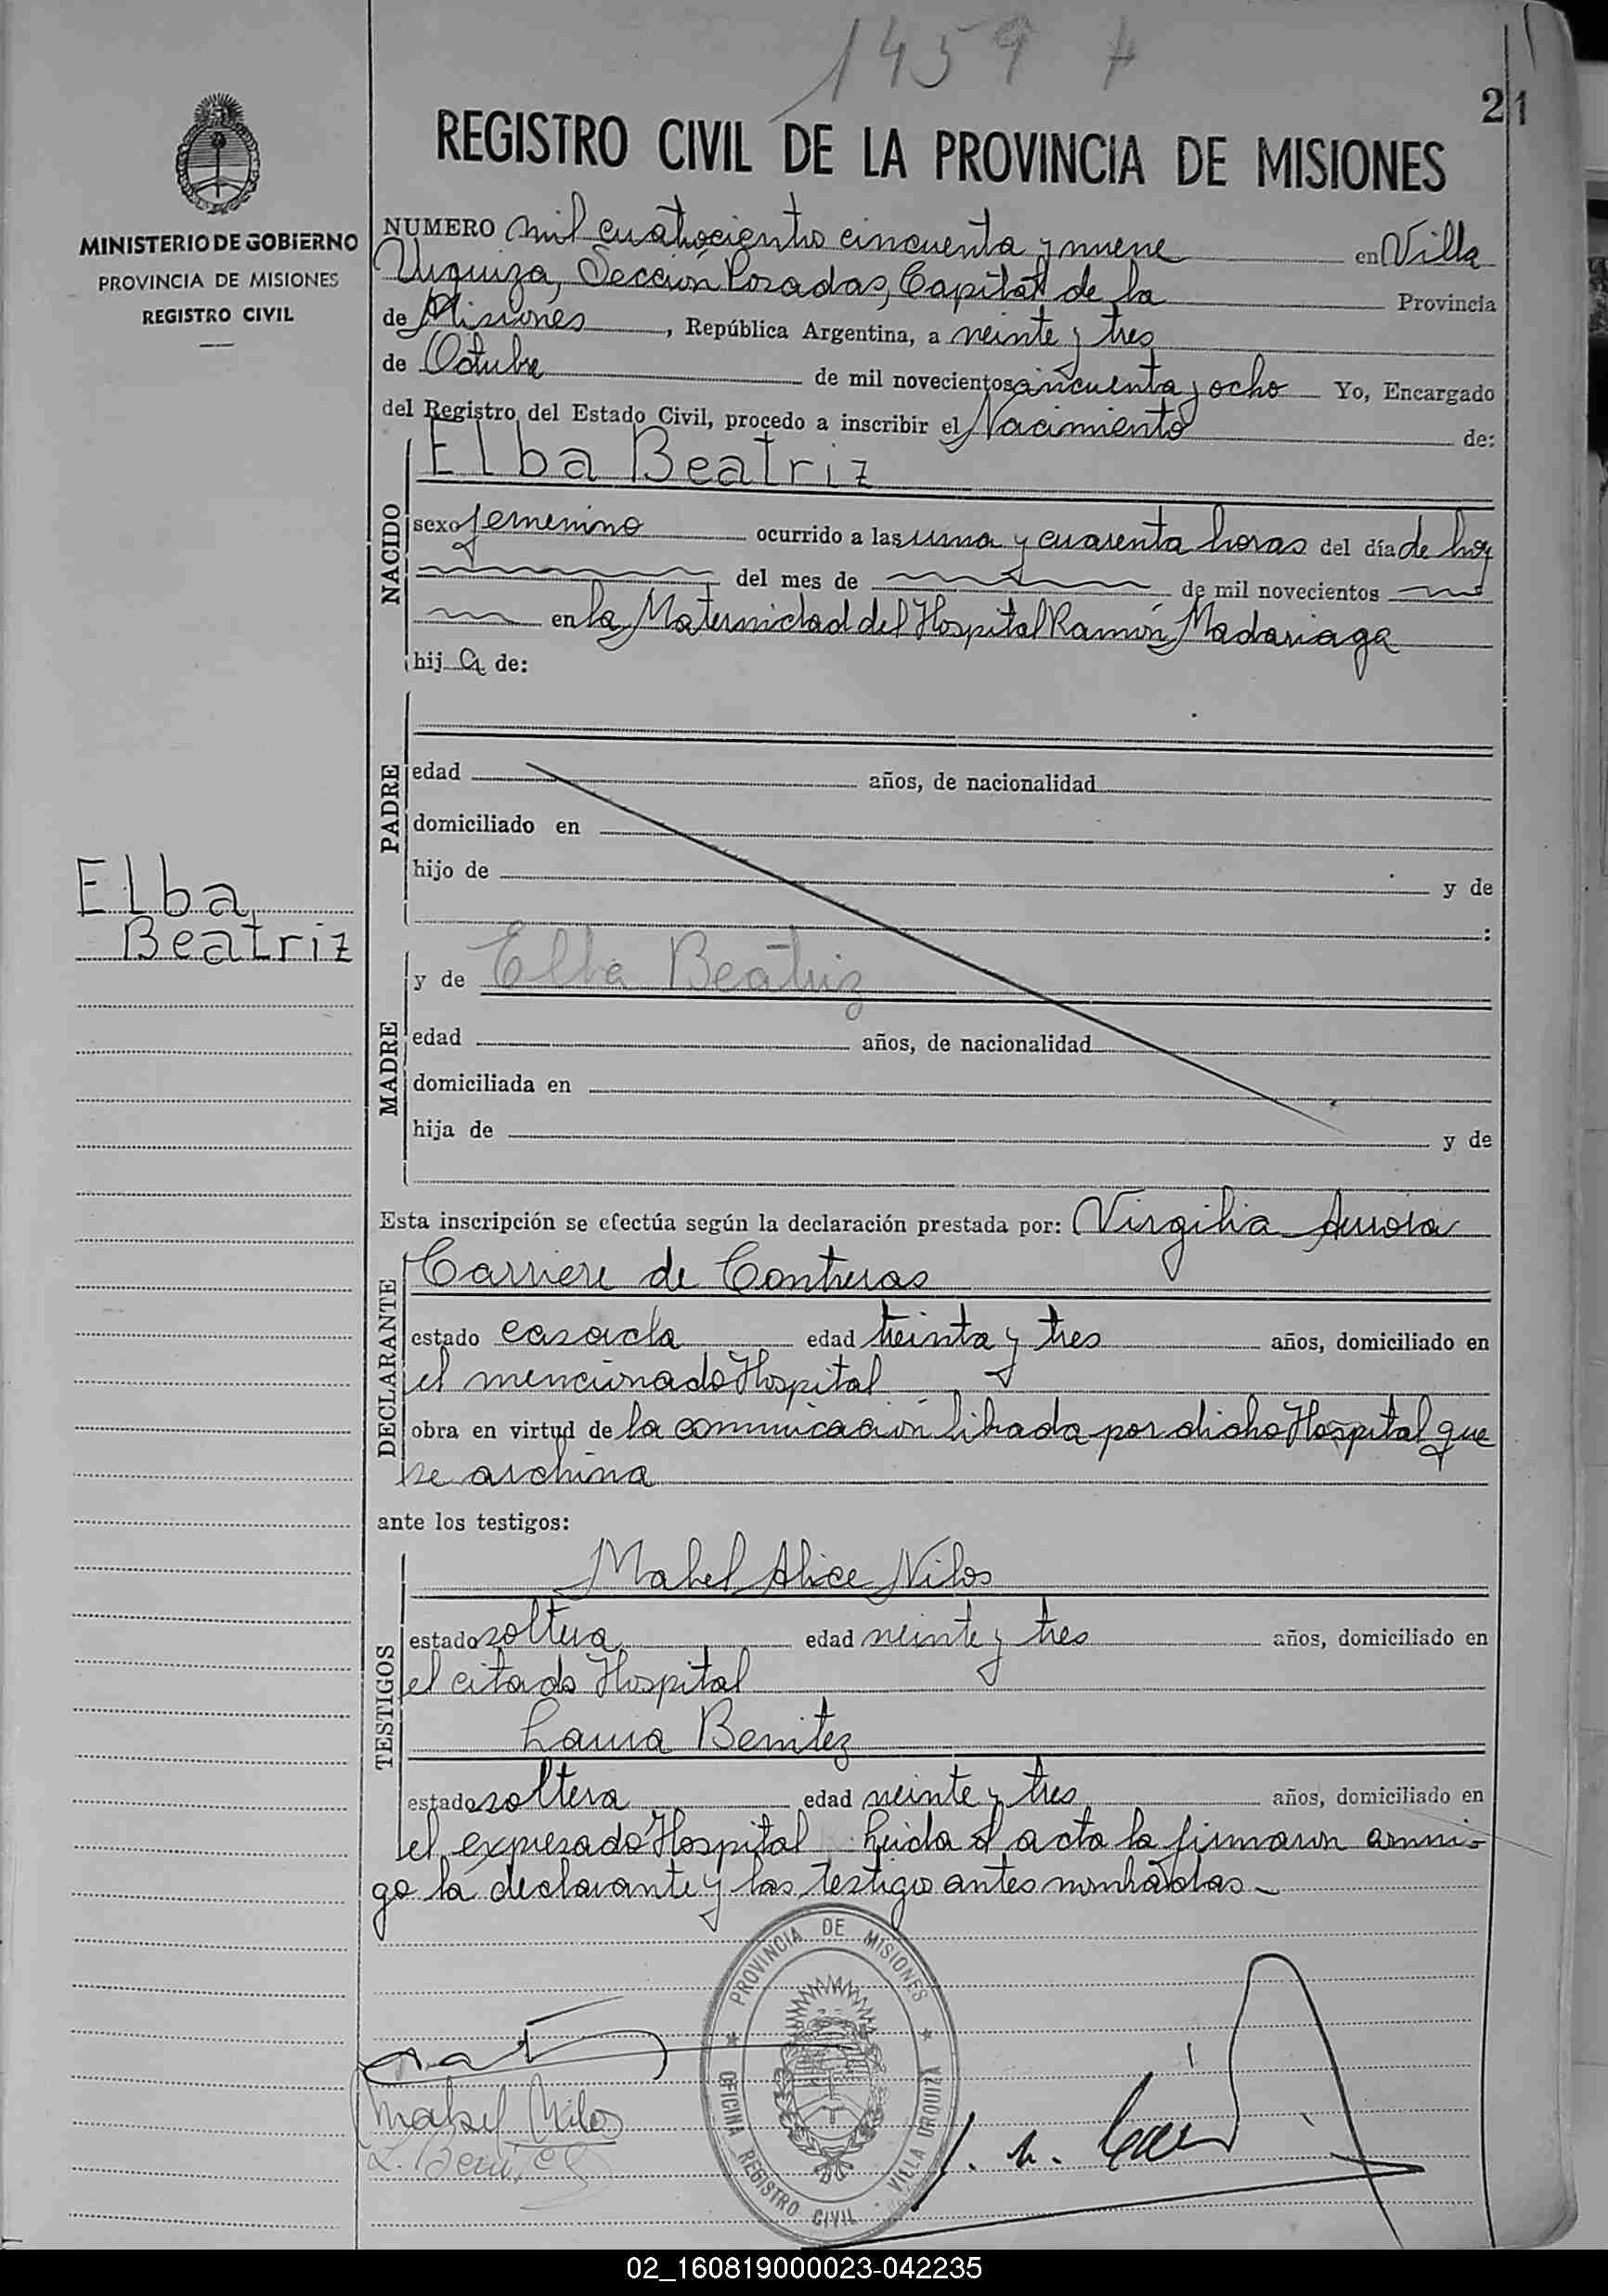 1459
21
REGISTRO CIVIL DE LA PROVINCIA DE MISIONES
MINISTERIO DE GOBIERNO
PROVINCIA DE MISIONES
REGISTRO CIVIL
NUMERO mil cuatrocientos cincuenta y nueve en Villa
Urquiza, Sección Posadas, Capital de la Provincia
de Misiones, República Argentina, a veinte y tres
de Octubre de mil novecientos cincuenta y ocho Yo, Encargado
del Registro del Estado Civil, procedo a inscribir el Nacimiento de:
NACIDO
Elba Beatriz
sexo femenino ocurrido a las una y cuarenta horas del día de hoy
del mes de de mil novecientos
en la Maternidad del Hospital Ramón Madariaga
hija de:
PADRE
edad años, de nacionalidad
domiciliado en
hijo de y de
:
Elba
Beatriz
MADRE
y de Elba Beatriz
edad años, de nacionalidad
domiciliada en
hija de y de
Esta inscripción se efectúa según la declaración prestada por: Virgilia
DECLARANTE
Carriere de Contreras
estado casada edad treinta y tres años, domiciliado en
el mencionado Hospital
obra en virtud de la comunicación librada por dicho Hospital que
se archiva
ante los testigos:
TESTIGOS
Mabel Alice Nilos
estado soltera edad veinte y tres años, domiciliado en
el citado Hospital
Laura Benitez
estado soltera edad veinte y tres años, domiciliado en
el expresado Hospital Leida el acta la firmaron conmi-
go la declarante y las testigos antes nombradas
PROVINCIA DE MISIONES
OFICINA REGISTRO CIVIL - VILLA URQUIZA
Mabel Nilos
L. Benitez
02_160819000023-042235